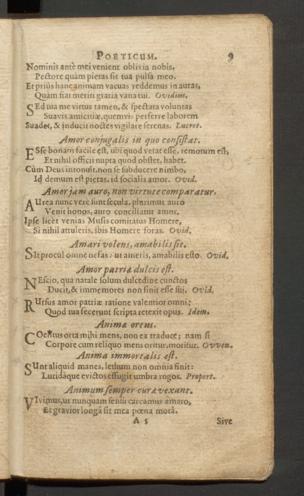 POETICUM. 9
Nominis antè mei venient oblivia nobis,
Pectore quàm pietas sit tua pulsa meo.
Et priùs hanc animam vacuas reddemus in auras,
Quàm fiat meritis gratia vana tui. Ovidius.
SEd tua me virtus tamen, & spectata voluntas
Suavis amicitiæ, quemvis perferre laborem
Suadet, & inducit noctes vigilare serenas. Lucret.
Amor conjugalis in quo consistat.
ESse bonam facile est, ubi quod vetat esse, remotum est,
Et nihil officii nupta quod obstet, habet.
Cùm Deus intonuit, non se subducere nimbo,
Id demum est pietas, id socialis amor. Ovid.
Amor jam auro, non virtute comparatur.
AUrea nunc verè sunt secula, plurimus auro
Venit honos, auro conciliatur amor.
Ipse licet venias Musis comitatus Homere,
Si nihil attuleris, ibis Homere foras. Ovid.
Amari volens, amabilis sit.
SIt procul omne nefas: ut ameris, amabilis esto. Ovid.
Amor patriæ dulcis est.
NEscio, qua natale solum dulcedine cunctos
Ducit, & immemores non sinit esse sui. Ovid.
RUrsus amor patriæ ratione valentior omni:
Quod tua fecerunt scripta retexit opus. Idem.
Anima ortus.
COelitus orta mihi mens, non ea traduce; nam si
Corpore cum reliquo mens oritur, moritur. Owen.
Anima immortalis est.
SUnt aliquid manes, lethum non omnia finit:
Luridaque evictos effugit umbra rogos. Propert.
Animum semper curæ vexant.
VIvimus, ut nunquam sensu careamus amaro,
Et gravior longâ sit mea pœna morâ.
A 5 Sive